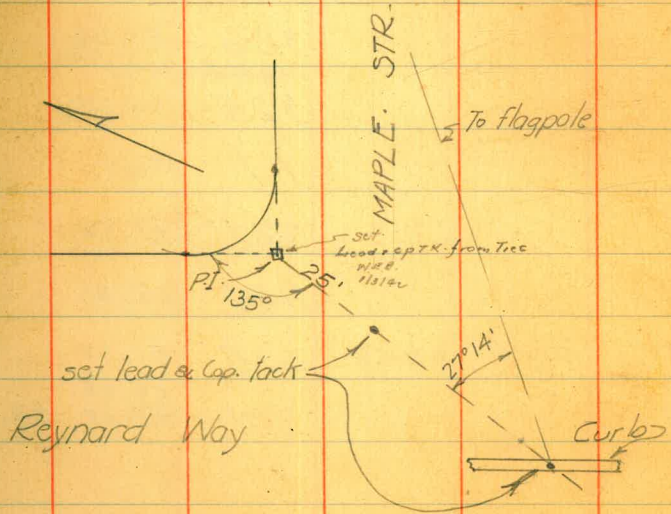 MAPLE. STR.
To flagpole
set
Lead & cp TK. from Ties
P.I.
25'
135°
27°14'
set lead & Cop. tack
Reynard Way
Curb